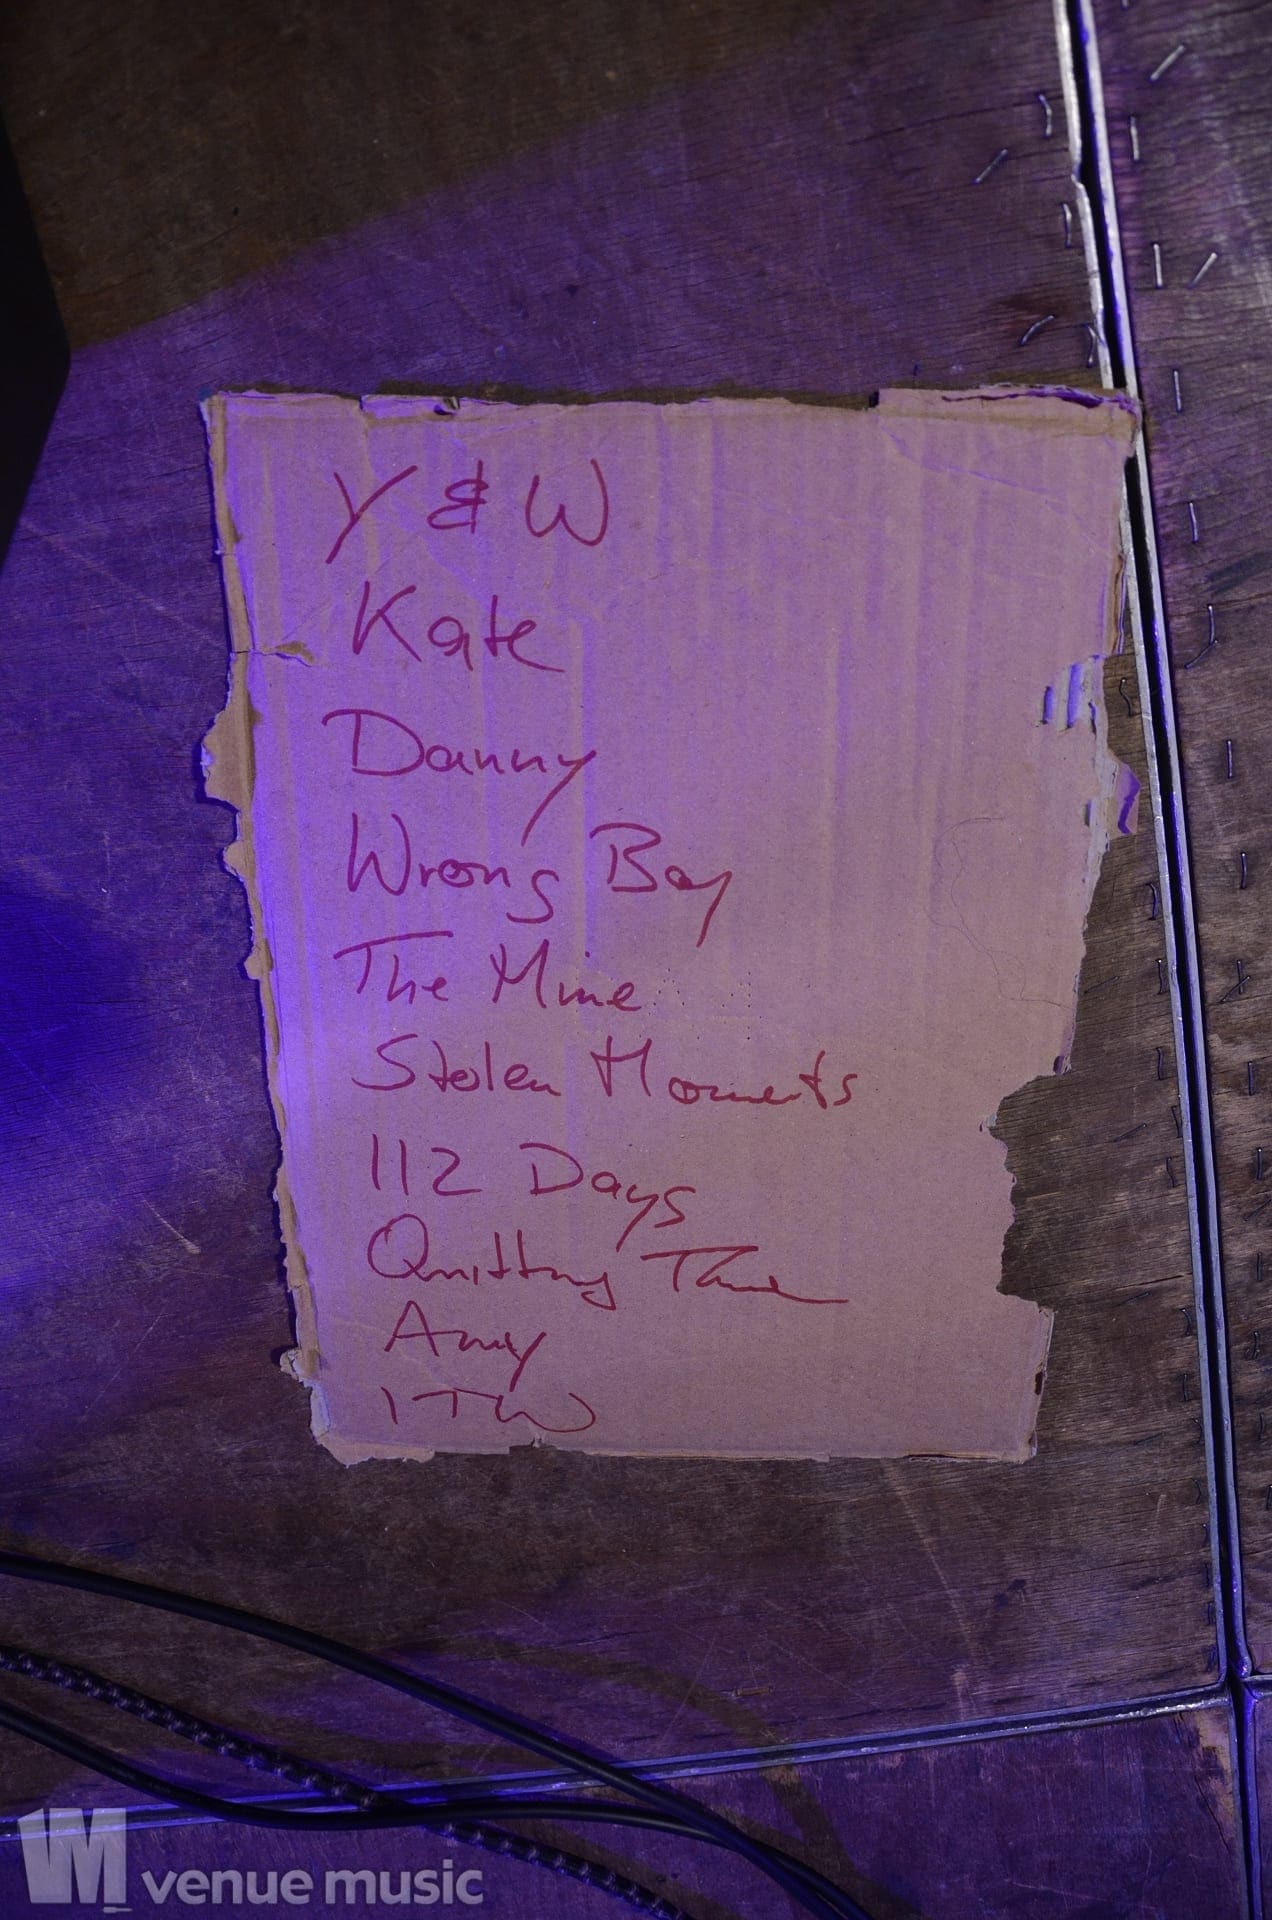 Y & W
Kate
Danny
Wrong Boy
The Mine
Stolen Moments
112 Days
Quitting Time
Amy
ITW
VM venue music